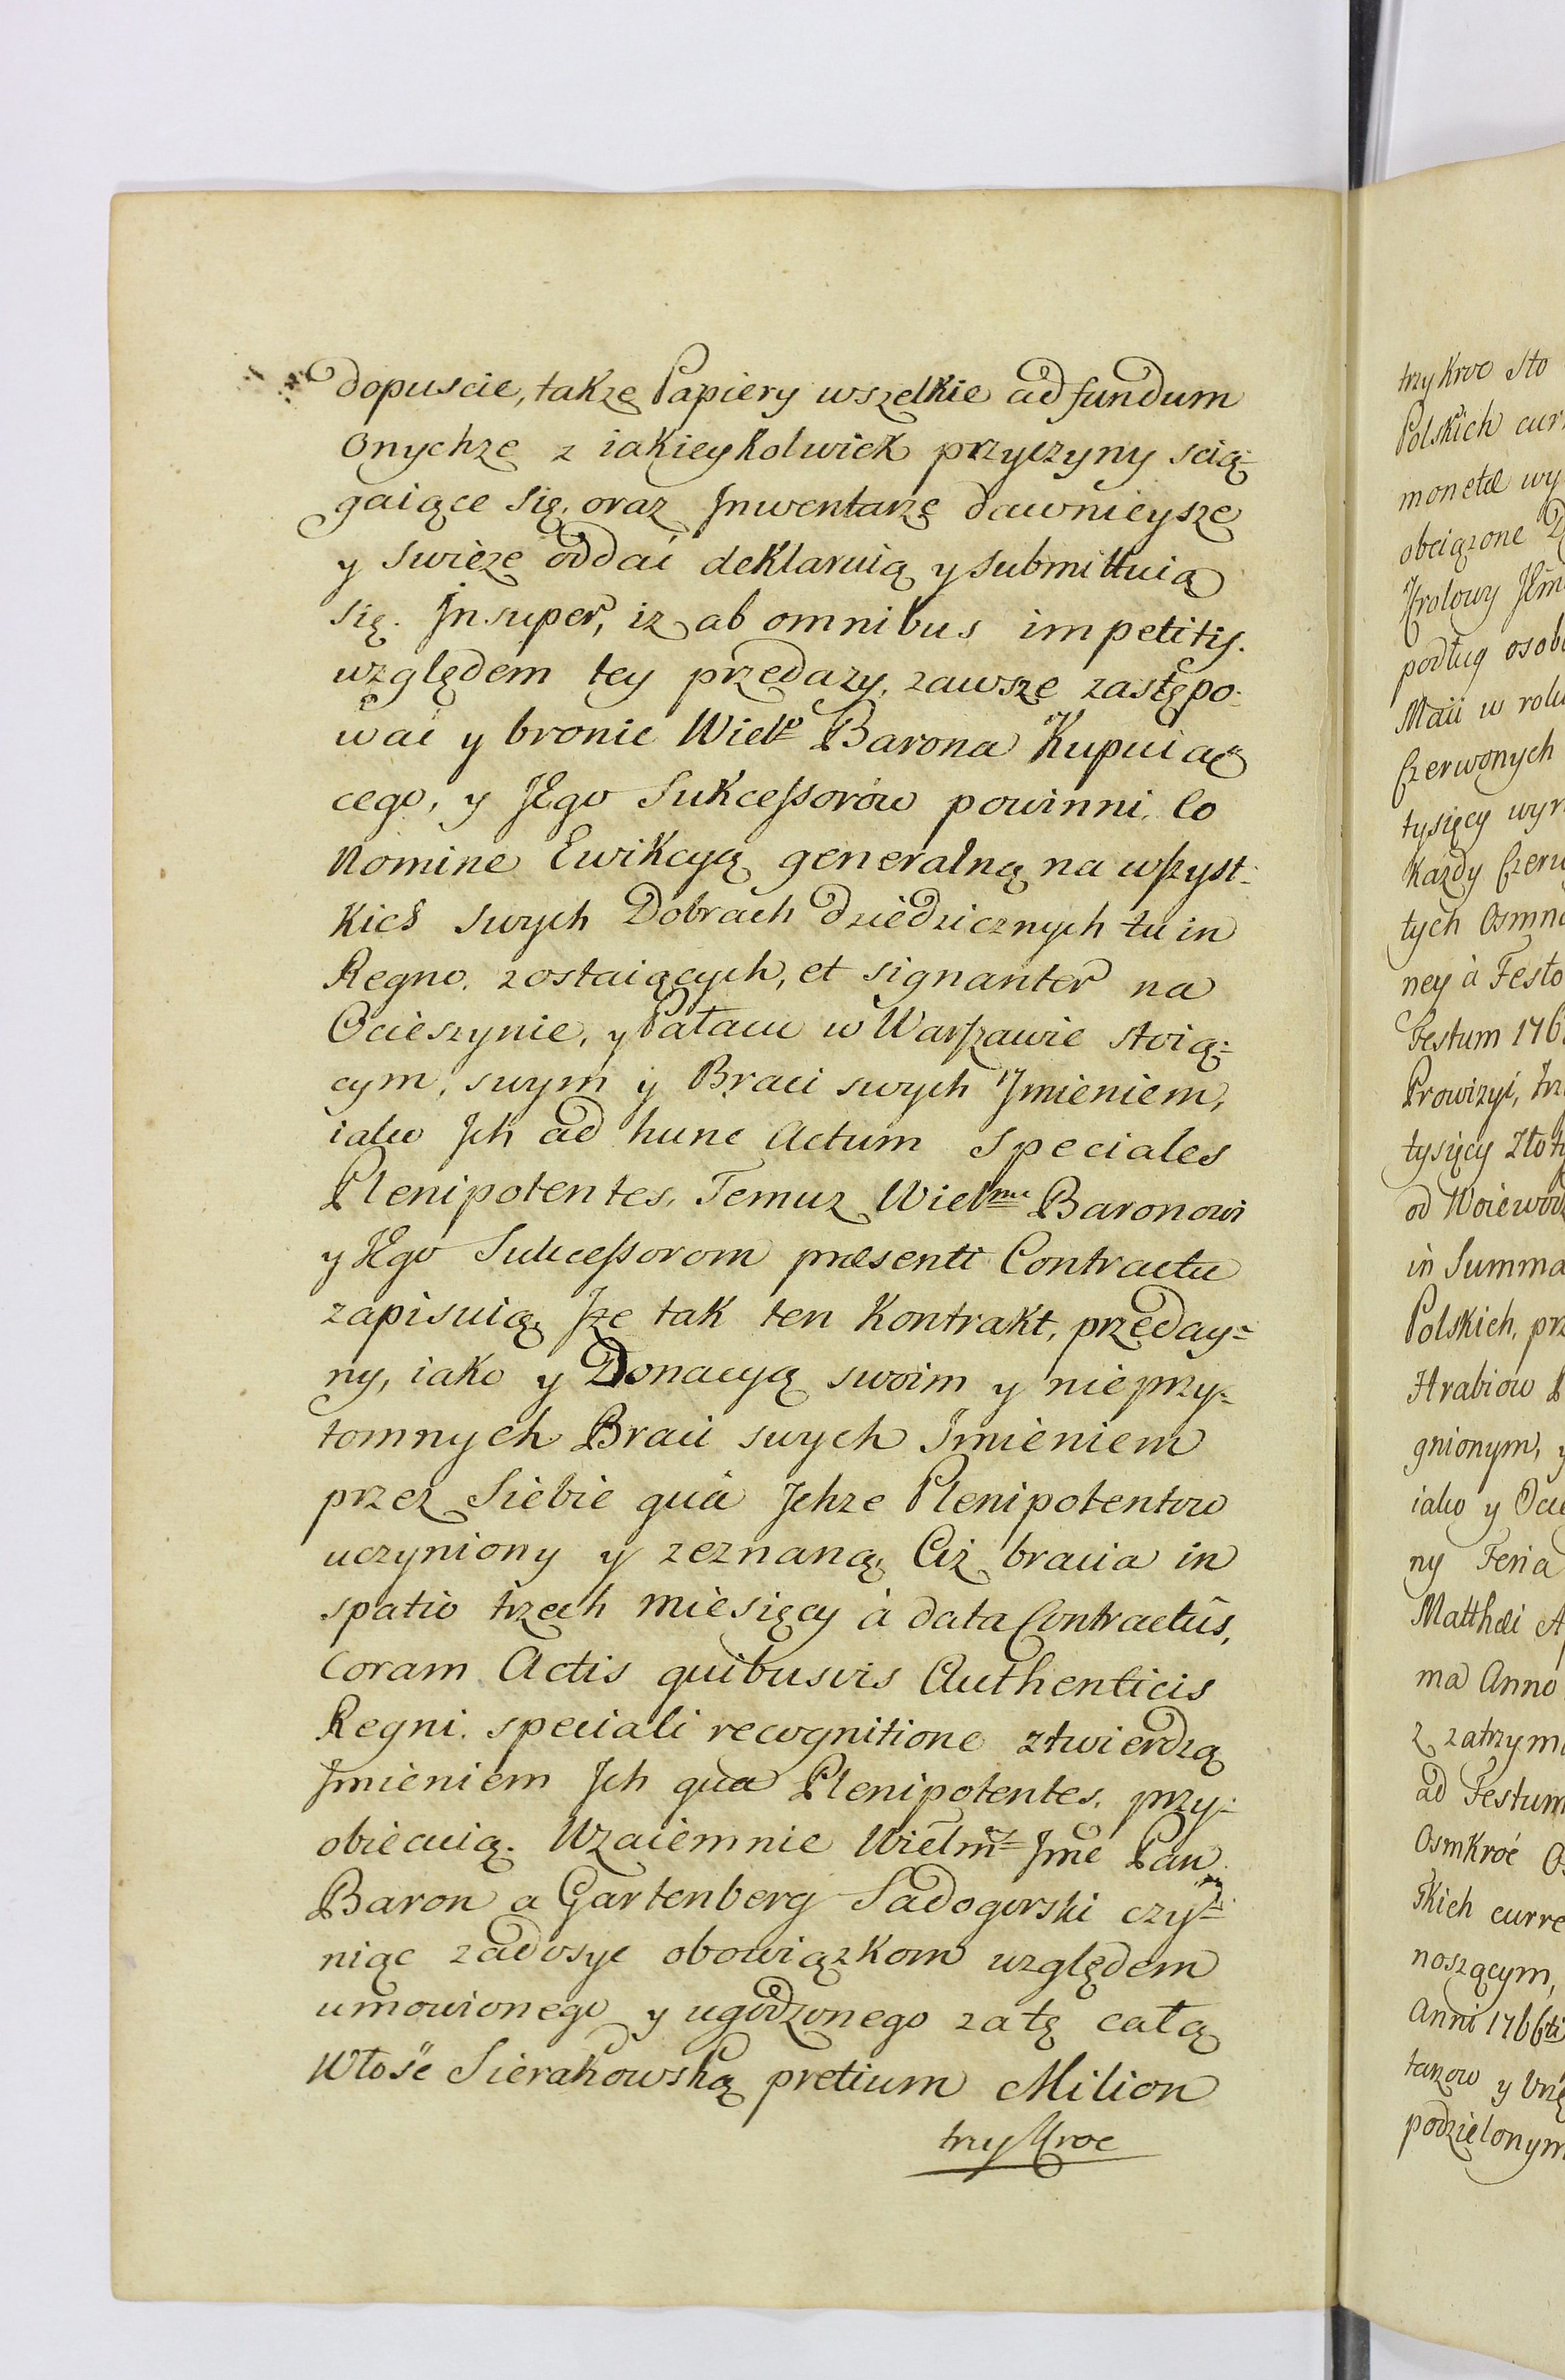 dopuscie, takze Papiery wszelkie ad fundum
Onychze z iakieykolwiek przyczyny scią-
gaiące się, oraz Jnwentarze dawnieysze
y swieze oddać deklaruią y submittuią
się. Jnsuper, iz ab omnibus impetitis.
względem tey przedazy, zawsze zastępo-
wać y bronic Wielo Barona Kupuią
cego, y JEgo Sukcessorów powinni, Eo
Nomine Ewikcyą generalną na wszyst-
kich swych Dobrach dziedzicznych tu in
Regno. zostaiących, et signanter na
Ocieszynie, y Pałacu w Warszawie stoią-
cym, swym y Braci swych Jmieniem,
iako Jch ad hunc Actum Speciales
Plenipotentes, Temuz Wielmu Baronowi
y JEgo Sukcessorom præsenti Contractu
zapisuią, Jze tak ten Kontrakt, przeday-
ny, iako y Donacyą swoim y nieprzy-
tomnych Braci swych Jmieniem
przez Siebie quà Jchze Plenipotentow
uczyniony y zeznaną, Ciż bracia in
spatio trzech miesięcy à data Contractûs,
Coram Actis quibusvis Authenticis
Regni. speciali recognitione ztwierdzą
Jmieniem Jch qua Plenipotentes, przy-
obiecuią. Wzaiemnie Wielmny Jmć Pan
Baron a Gartenberg Sadogorski czy-
niąc zadosyc obowiązkom względem
umowionego y ugodzonego za tę całą
Włość Sierakowską pretium Milion
trzykroc
trzykroc sto
Polskich cur
monetæ wy
obciązone D
Krolowy JEm
podług osob
Maii w rok
Czerwonych
tysięcy wyr
Kazdy Czerw
tych Osmn
ney à Festo
Festum 176
Prowizyi, trz
tysięcy Złoty
od Woiewod
in Summa
Polskich, prz
Hrabiow
gnionym, y
iako y Ocie
ny Feria
Matthæi A
ma Anno
z zatrzym
ad Festum
Osmkroć Os
skich curre
noszącym,
Anni 1766ti
tanzow y Urzę
podzielonym